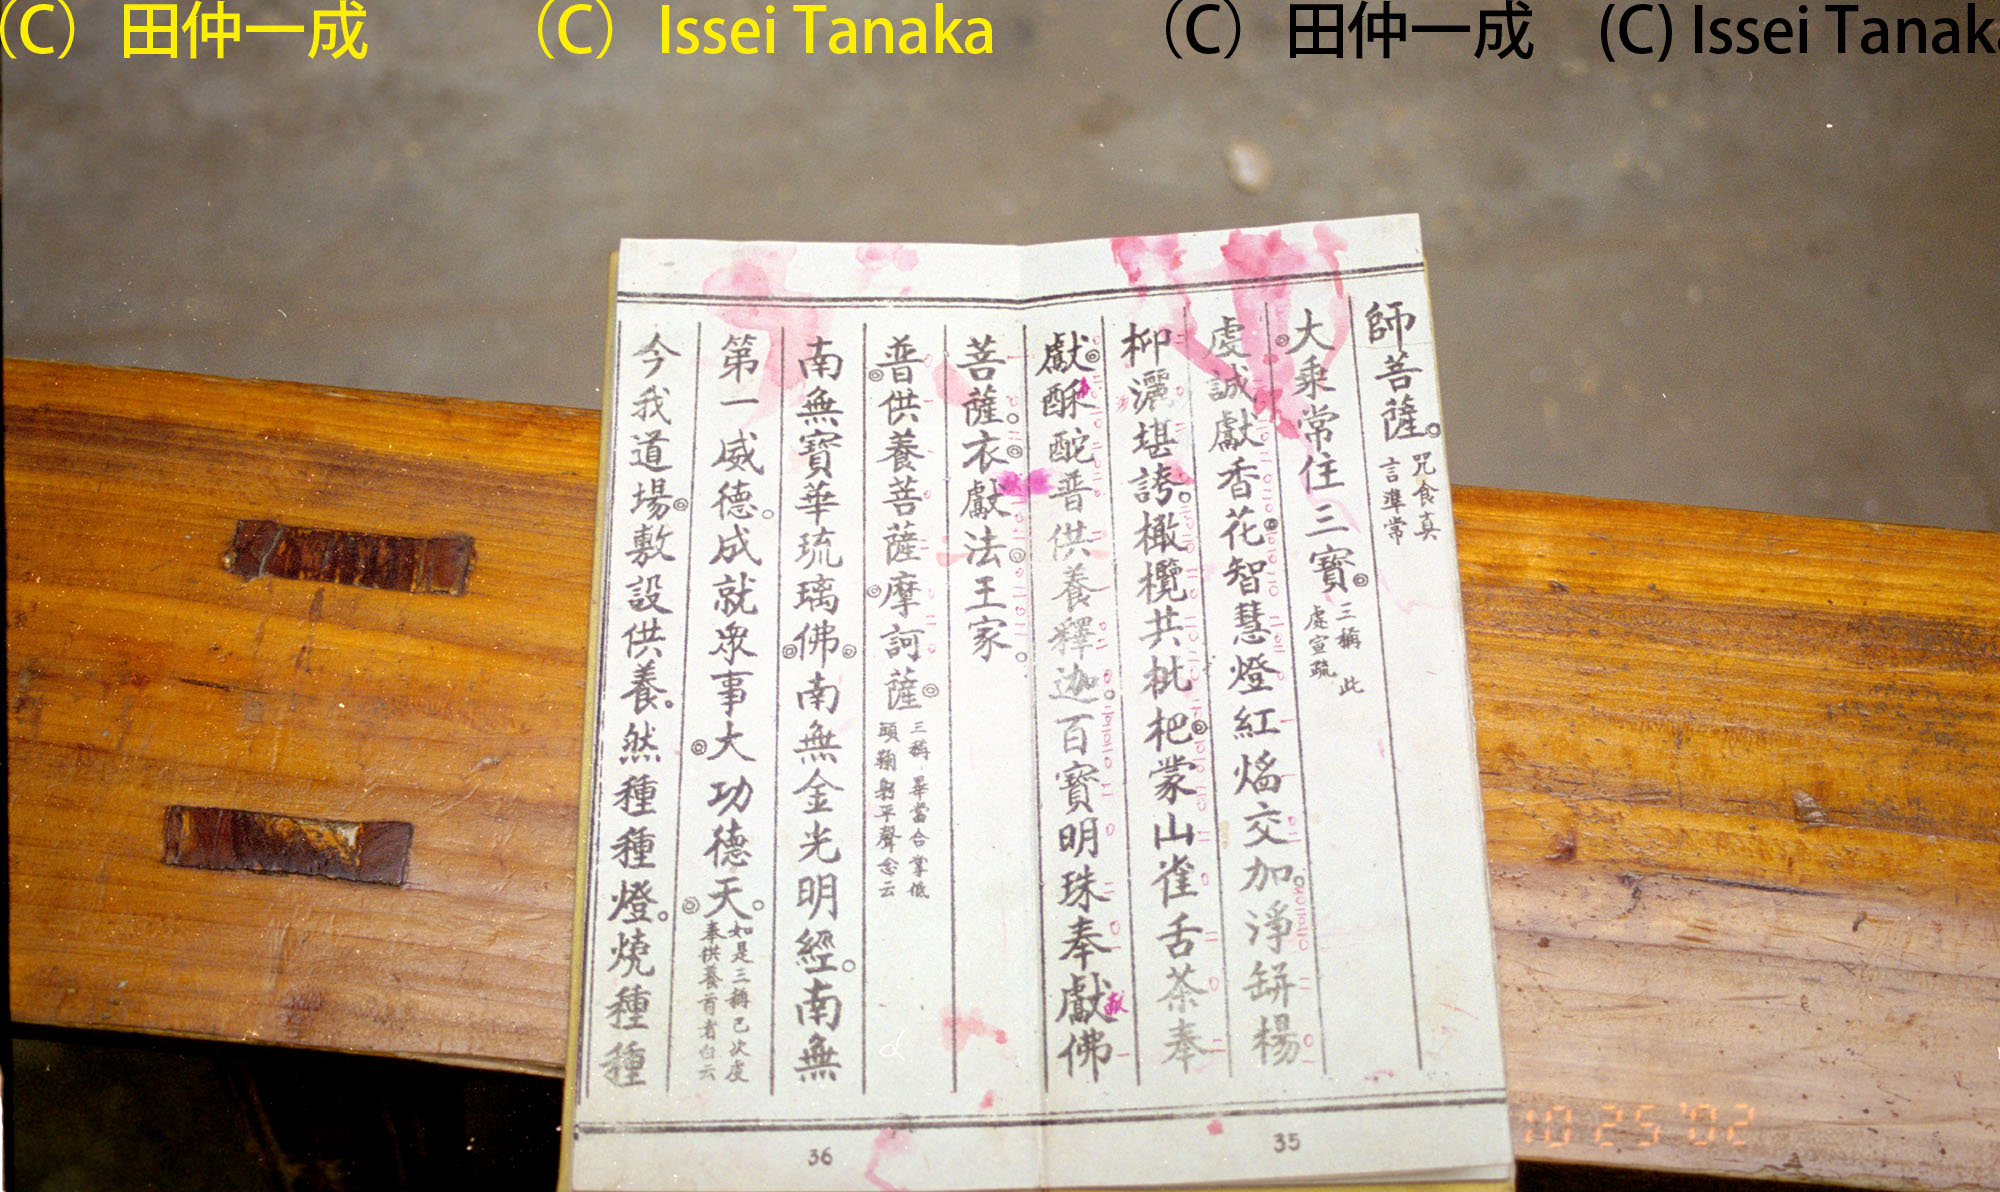 (C) 田仲一成 (C) Issei Tanaka (C) 田仲一成 (C) Issei Tanaka
師菩薩。咒食真言準常
大乘常住三寶三稱此處宣疏
虔誠獻香花智慧燈紅熖交加。淨缾楊
柳灑堪誇。橄欖共枇杷蒙山雀舌茶奉
獻酥酡普供養釋迦。百寶明珠奉獻佛
菩薩。衣獻法王家。
普供養菩薩摩訶薩三稱畢當合掌低頭鞠躬平聲念云
南無寶華琉璃佛。南無金光明經。南無
第一威德。成就眾事大功德天。如是三稱已次虔奉供養首者白云
今我道場敷設供養。然種種燈。燒種種
36
35
10 25 '02